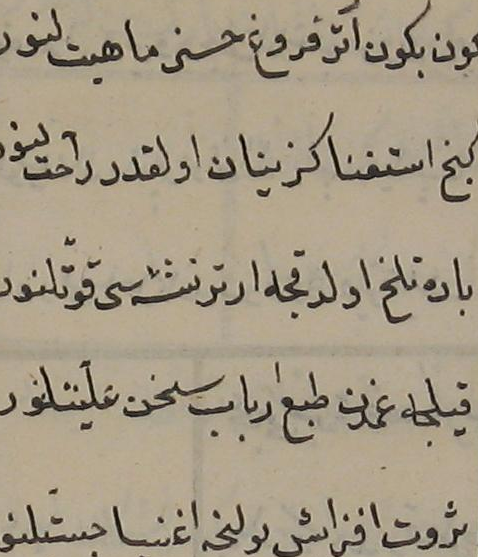 كون بكون آرتر فروغ حسنى ماهيت لنور
كنج استغنا كزينان اولقدر راحت لنور
باده تلخ اولدقجه ارتر نشئه سى قوّتلنور
قيلجه غمدن طبع ارباب سخن علّتلنور
ثروت افزايش بولنجه اغنيا خسّتلنور